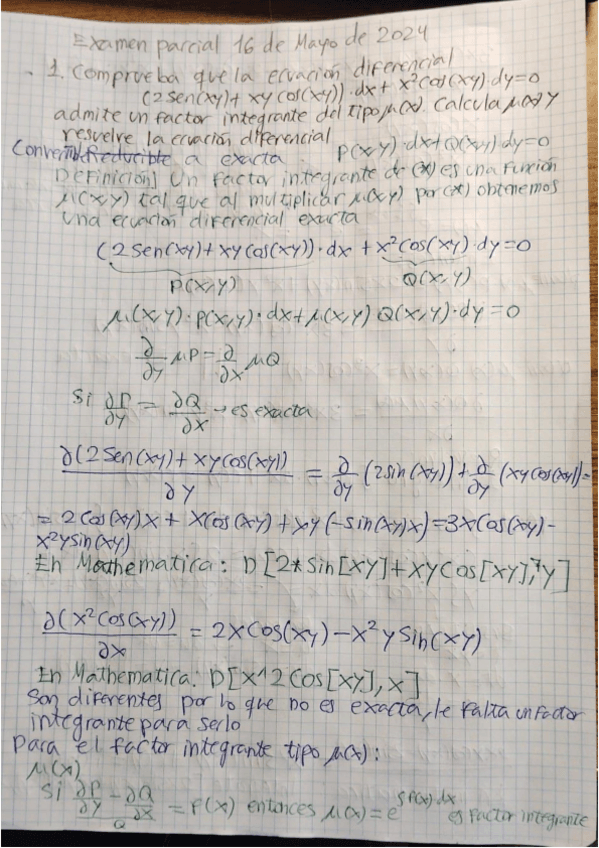 Examen parcial 16 de Mayo de 2024
1. Comprueba que la ecuación diferencial
(2sen(xy)+ xy cos(xy))·dx + x²cos(xy)·dy=0
admite un factor integrante del tipo μ(x). Calcula μ(x) y
resuelve la ecuación diferencial
Reducible a exacta P(x,y)·dx+Q(x,y)dy=0
Definición] Un factor integrante de (*) es una función
μ(x,y) tal que al multiplicar μ(x,y) por (*) obtenemos
una ecuación diferencial exacta
(2sen(xy)+xy cos(xy))·dx + x²cos(xy)·dy=0
P(x,y) Q(x,y)
μ(x,y)·P(x,y)·dx+μ(x,y)Q(x,y)·dy=0
∂/∂y μP = ∂/∂x μQ
Si ∂P/∂y = ∂Q/∂x → es exacta
∂(2sen(xy)+xycos(xy))/∂y = ∂/∂y (2sin(xy))+∂/∂y (xycos(xy))=
= 2cos(xy)x + xcos(xy)+xy(-sin(xy)x)=3xcos(xy)-
x²ysin(xy)
En Mathematica: D[2*Sin[xy]+xyCos[xy],y]
∂(x²cos(xy))/∂x = 2xcos(xy)-x²ysin(xy)
En Mathematica: D[x^2Cos[xy],x]
Son diferentes por lo que no es exacta, le falta un factor
integrante para serlo
Para el factor integrante tipo μ(x):
μ(x)
Si (∂P/∂y - ∂Q/∂x)/Q = P(x) entonces μ(x)=e^∫P(x)dx es factor integrante